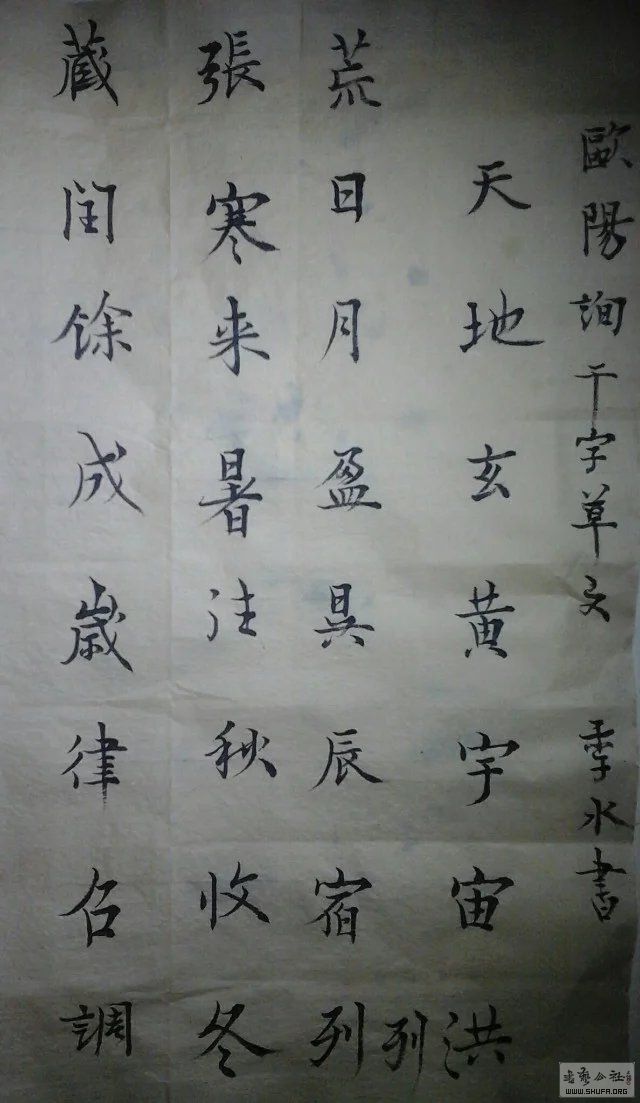 歐陽詢千字草文 季水書
天地玄黄宇宙洪
荒日月盈昃辰宿列列
張寒来暑往秋收冬
藏闰馀成歲律召調
WWW.SHUFA.ORG